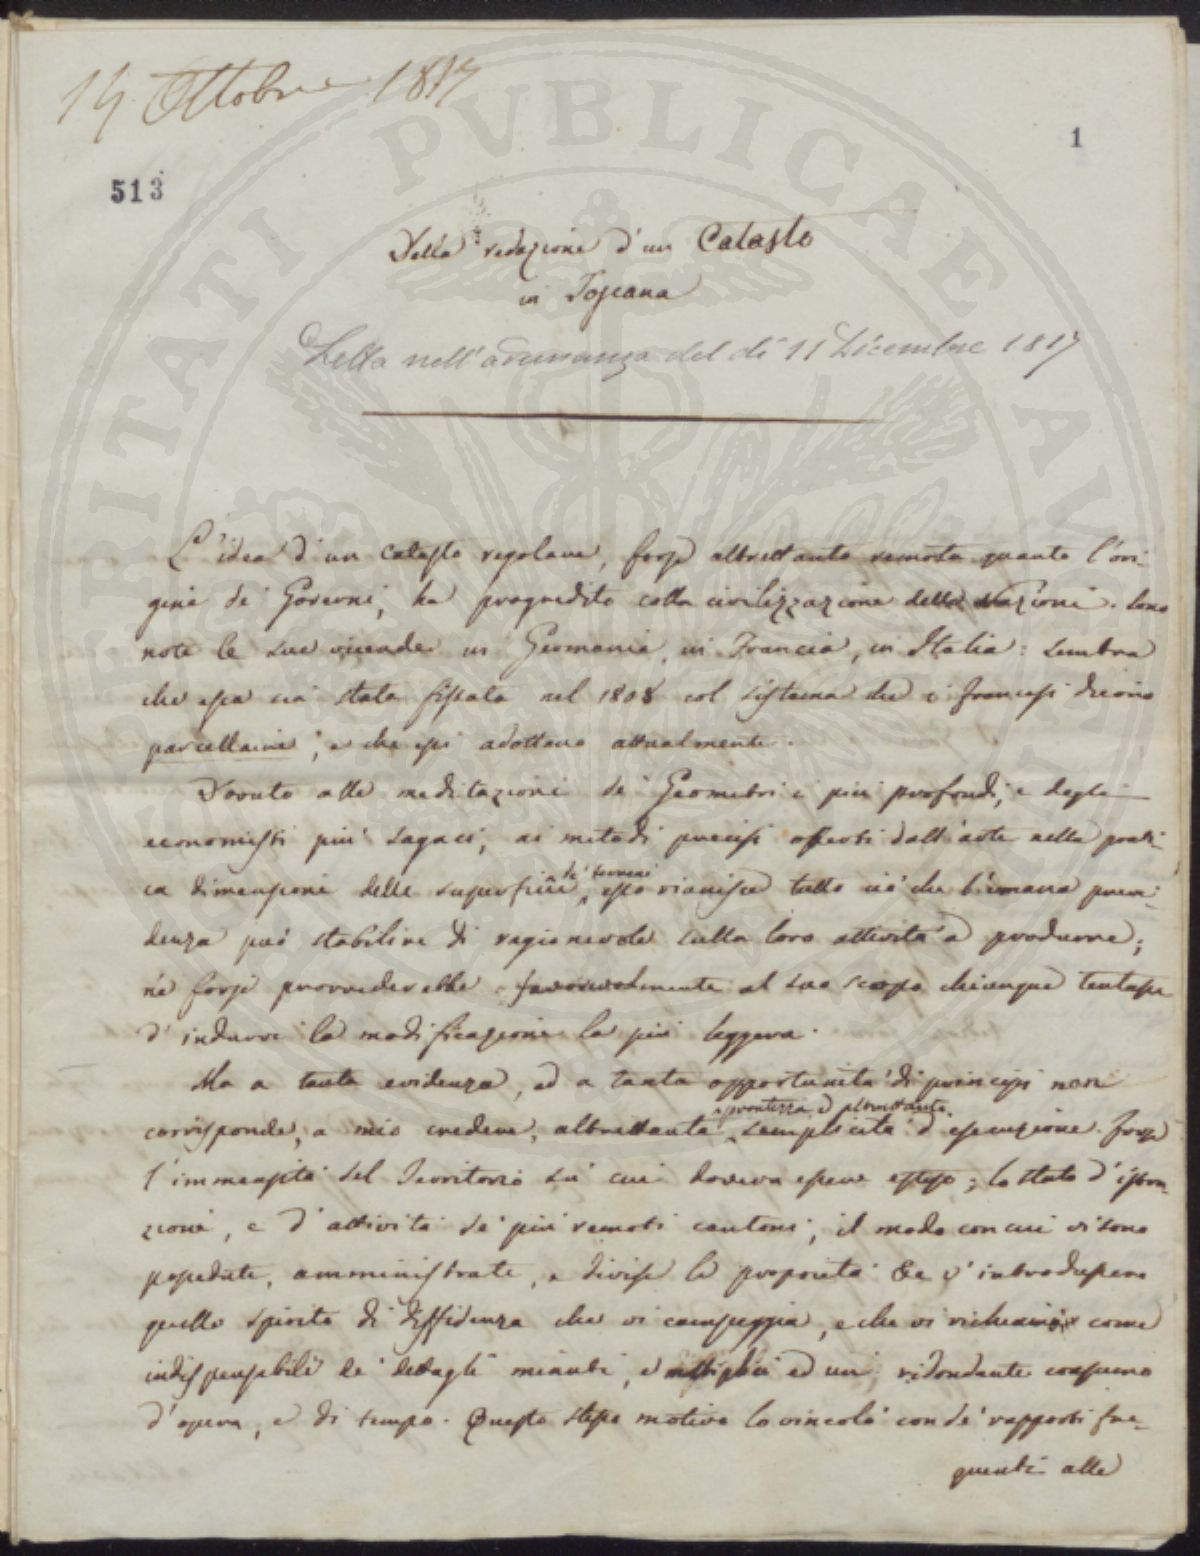 14 Ottobre 1817
1
513
Della redazione d'un Catasto
in Toscana
Letta nell'adunanza del dì 11 Dicembre 1817
L'idea d'un catasto regolare, forse altrettanto remota quanto l'ori-
gine de' Governi, ha progredito colla civilizzazione delle Nazioni. Sono
note le sue vicende in Germania, in Francia, in Italia: sembra
che essa sia stata fissata nel 1808 col sistema che i francesi dicono
parcellaire, e che essi adottano attualmente.
Dovuto alle meditazioni de' Geometri i più profondi, e degli
economisti più sagaci, ai metodi precisi offerti dall'arte nella prati-
ca dimensione delle superficie de' terreni, esso riunisce tutto ciò che l'umana previ-
denza può stabilire di ragionevole sulla loro attività a produrre;
nè forse provvederebbe favorevolmente al suo scopo chiunque tentasse
d'indurvi la modificazione la più leggera.
Ma a tanta evidenza, ed a tanta opportunità di principj non
corrisponde, a mio credere, altrettanta prontezza e altrettanta semplicità d'esecuzione. Forse
l'immensità del Territorio su cui doveva essere esteso; lo stato d'istru-
zione, e d'attività de' più remoti cantoni; il modo con cui vi sono
possedute, amministrate, e divise le proprietà v'introdussero
quello spirito di diffidenza che vi campeggia, e che vi richiama come
indispensabili de' dettagli minuti, e moltiplici ed un ridondante consumo
d'opera, e di tempo. Questo stesso motivo lo vincolò con de' rapporti fre-
quenti alle
PVBLICAE